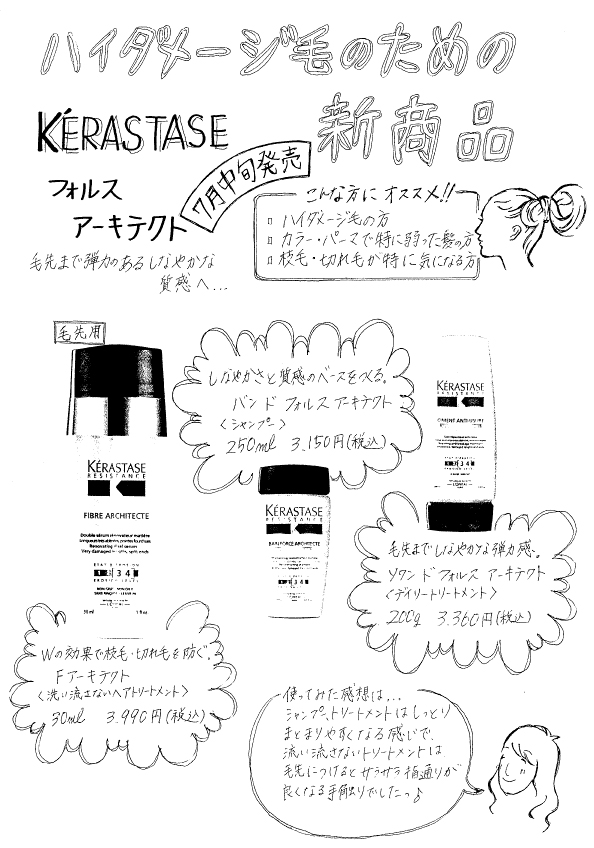 ハイダメージ毛のための
新商品
KÉRASTASE
フォルス
アーキテクト
7月中旬発売
毛先まで弾力のあるしなやかな
質感へ...
こんな方にオススメ!!
ハイダメージ毛の方
カラー・パーマで特に弱った髪の方
枝毛・切れ毛が特に気になる方
毛先用
KÉRASTASE
RESISTANCE
FIBRE ARCHITECTE
30ml 1 fl.oz
しなやかさと質感のベースをつくる。
バンド フォルス アーキテクト
〈シャンプー〉
250ml 3.150円(税込)
KÉRASTASE
RESISTANCE
BAIN FORCE ARCHITECTE
KÉRASTASE
RESISTANCE
CIMENT ANTI-USURE
毛先までしなやかな弾力感。
ソワン ド フォルス アーキテクト
〈デイリートリートメント〉
200g 3.360円(税込)
Wの効果で枝毛・切れ毛を防ぐ。
F アーキテクト
〈洗い流さないヘアトリートメント〉
30ml 3.990円(税込)
使ってみた感想は...
シャンプー、トリートメントはしっとり
まとまりやすくなる感じで、
流い流さないトリートメントは
毛先につけるとサラサラ指通りが
良くなる手触りでしたっ♪